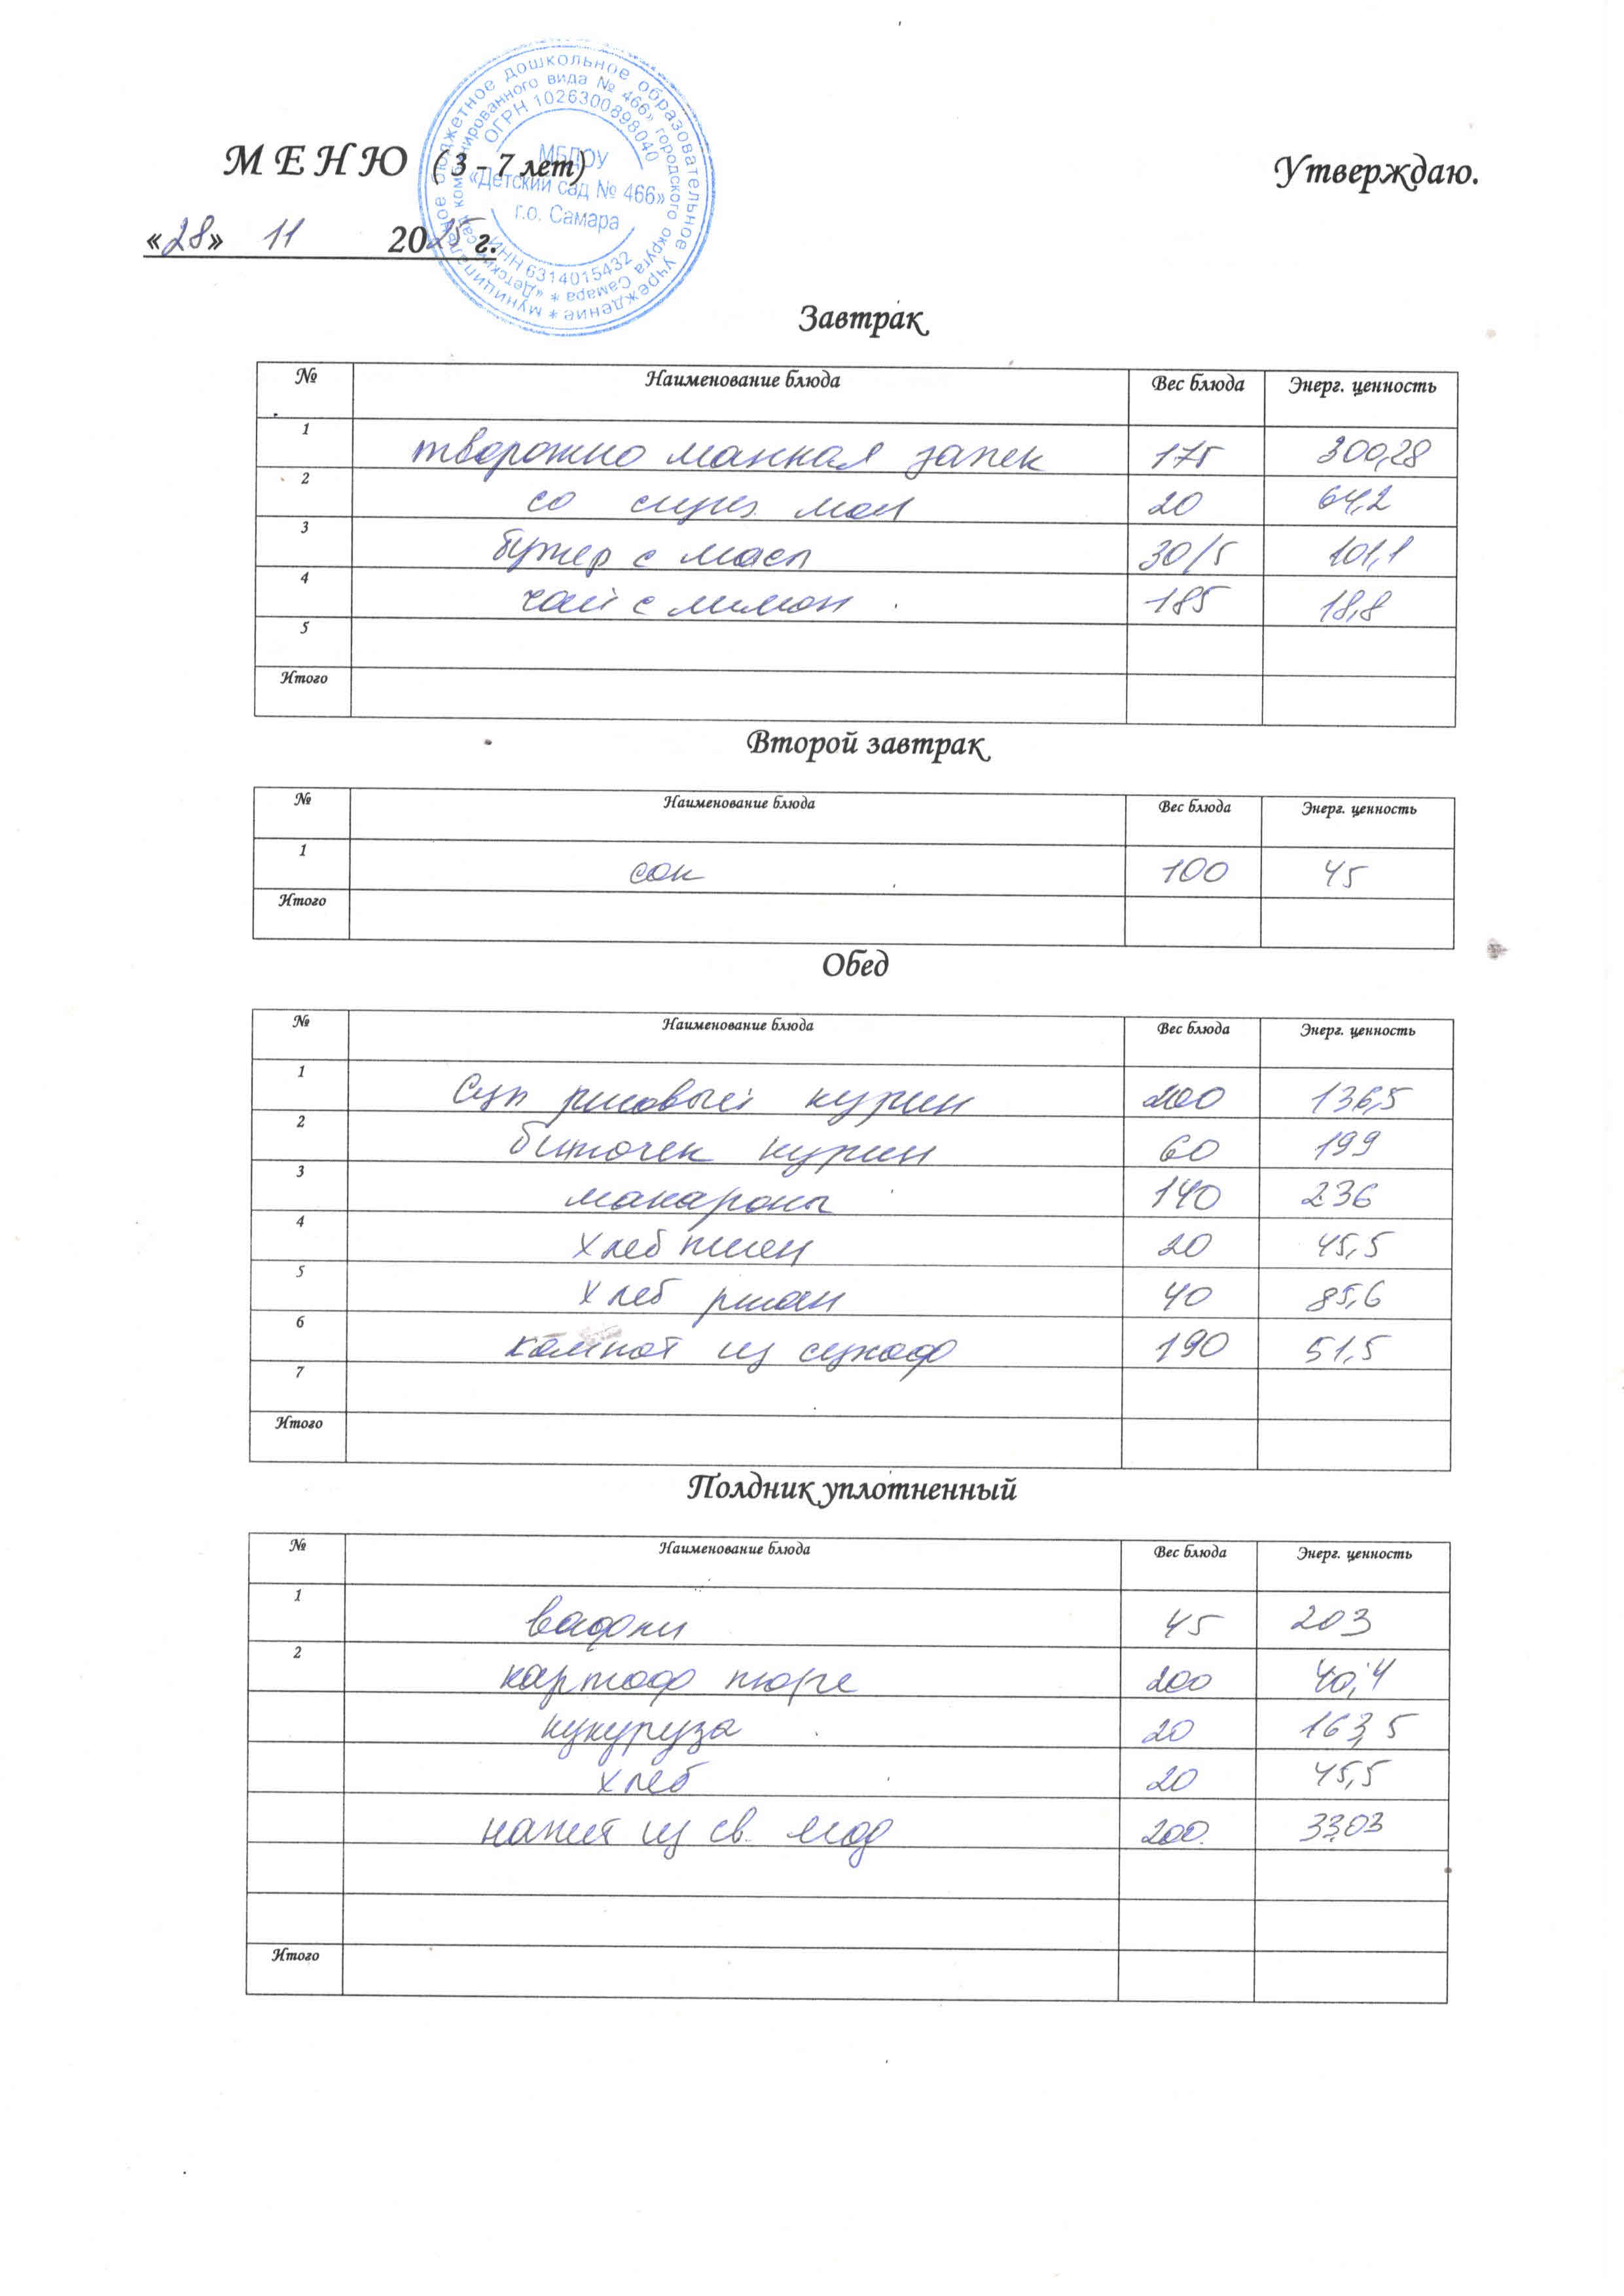 муниципальное бюджетное дошкольное образовательное учреждение *
«Детский сад комбинированного вида № 466» городского округа Самара *
ОГРН 1026300898040
МБДОУ
«Детский сад № 466»
г.о. Самара
ИНН 6314015432
МЕНЮ (3 - 7 лет) Утверждаю.
«28» 11 2025 г.
Завтрак
№ Наименование блюда Вес блюда Энерг. ценность
1 творожно манная запек 175 300,28
2 со сгущ. мол 20 64,2
3 бутер с масл 30/5 101,1
4 чай с лимон 185 18,8
5
Итого
Второй завтрак
№ Наименование блюда Вес блюда Энерг. ценность
1 сок 100 45
Итого
Обед
№ Наименование блюда Вес блюда Энерг. ценность
1 Суп рисовый курин 200 136,5
2 биточек курин 60 199
3 макароны 140 236
4 хлеб пшен 20 45,5
5 хлеб ржан 40 85,6
6 компот из сухоф 190 51,5
7
Итого
Полдник уплотненный
№ Наименование блюда Вес блюда Энерг. ценность
1 вафли 45 203
2 картоф пюре 200 40,4
кукуруза 20 163,5
хлеб 20 45,5
напит из св. ягод 200. 33,03
Итого